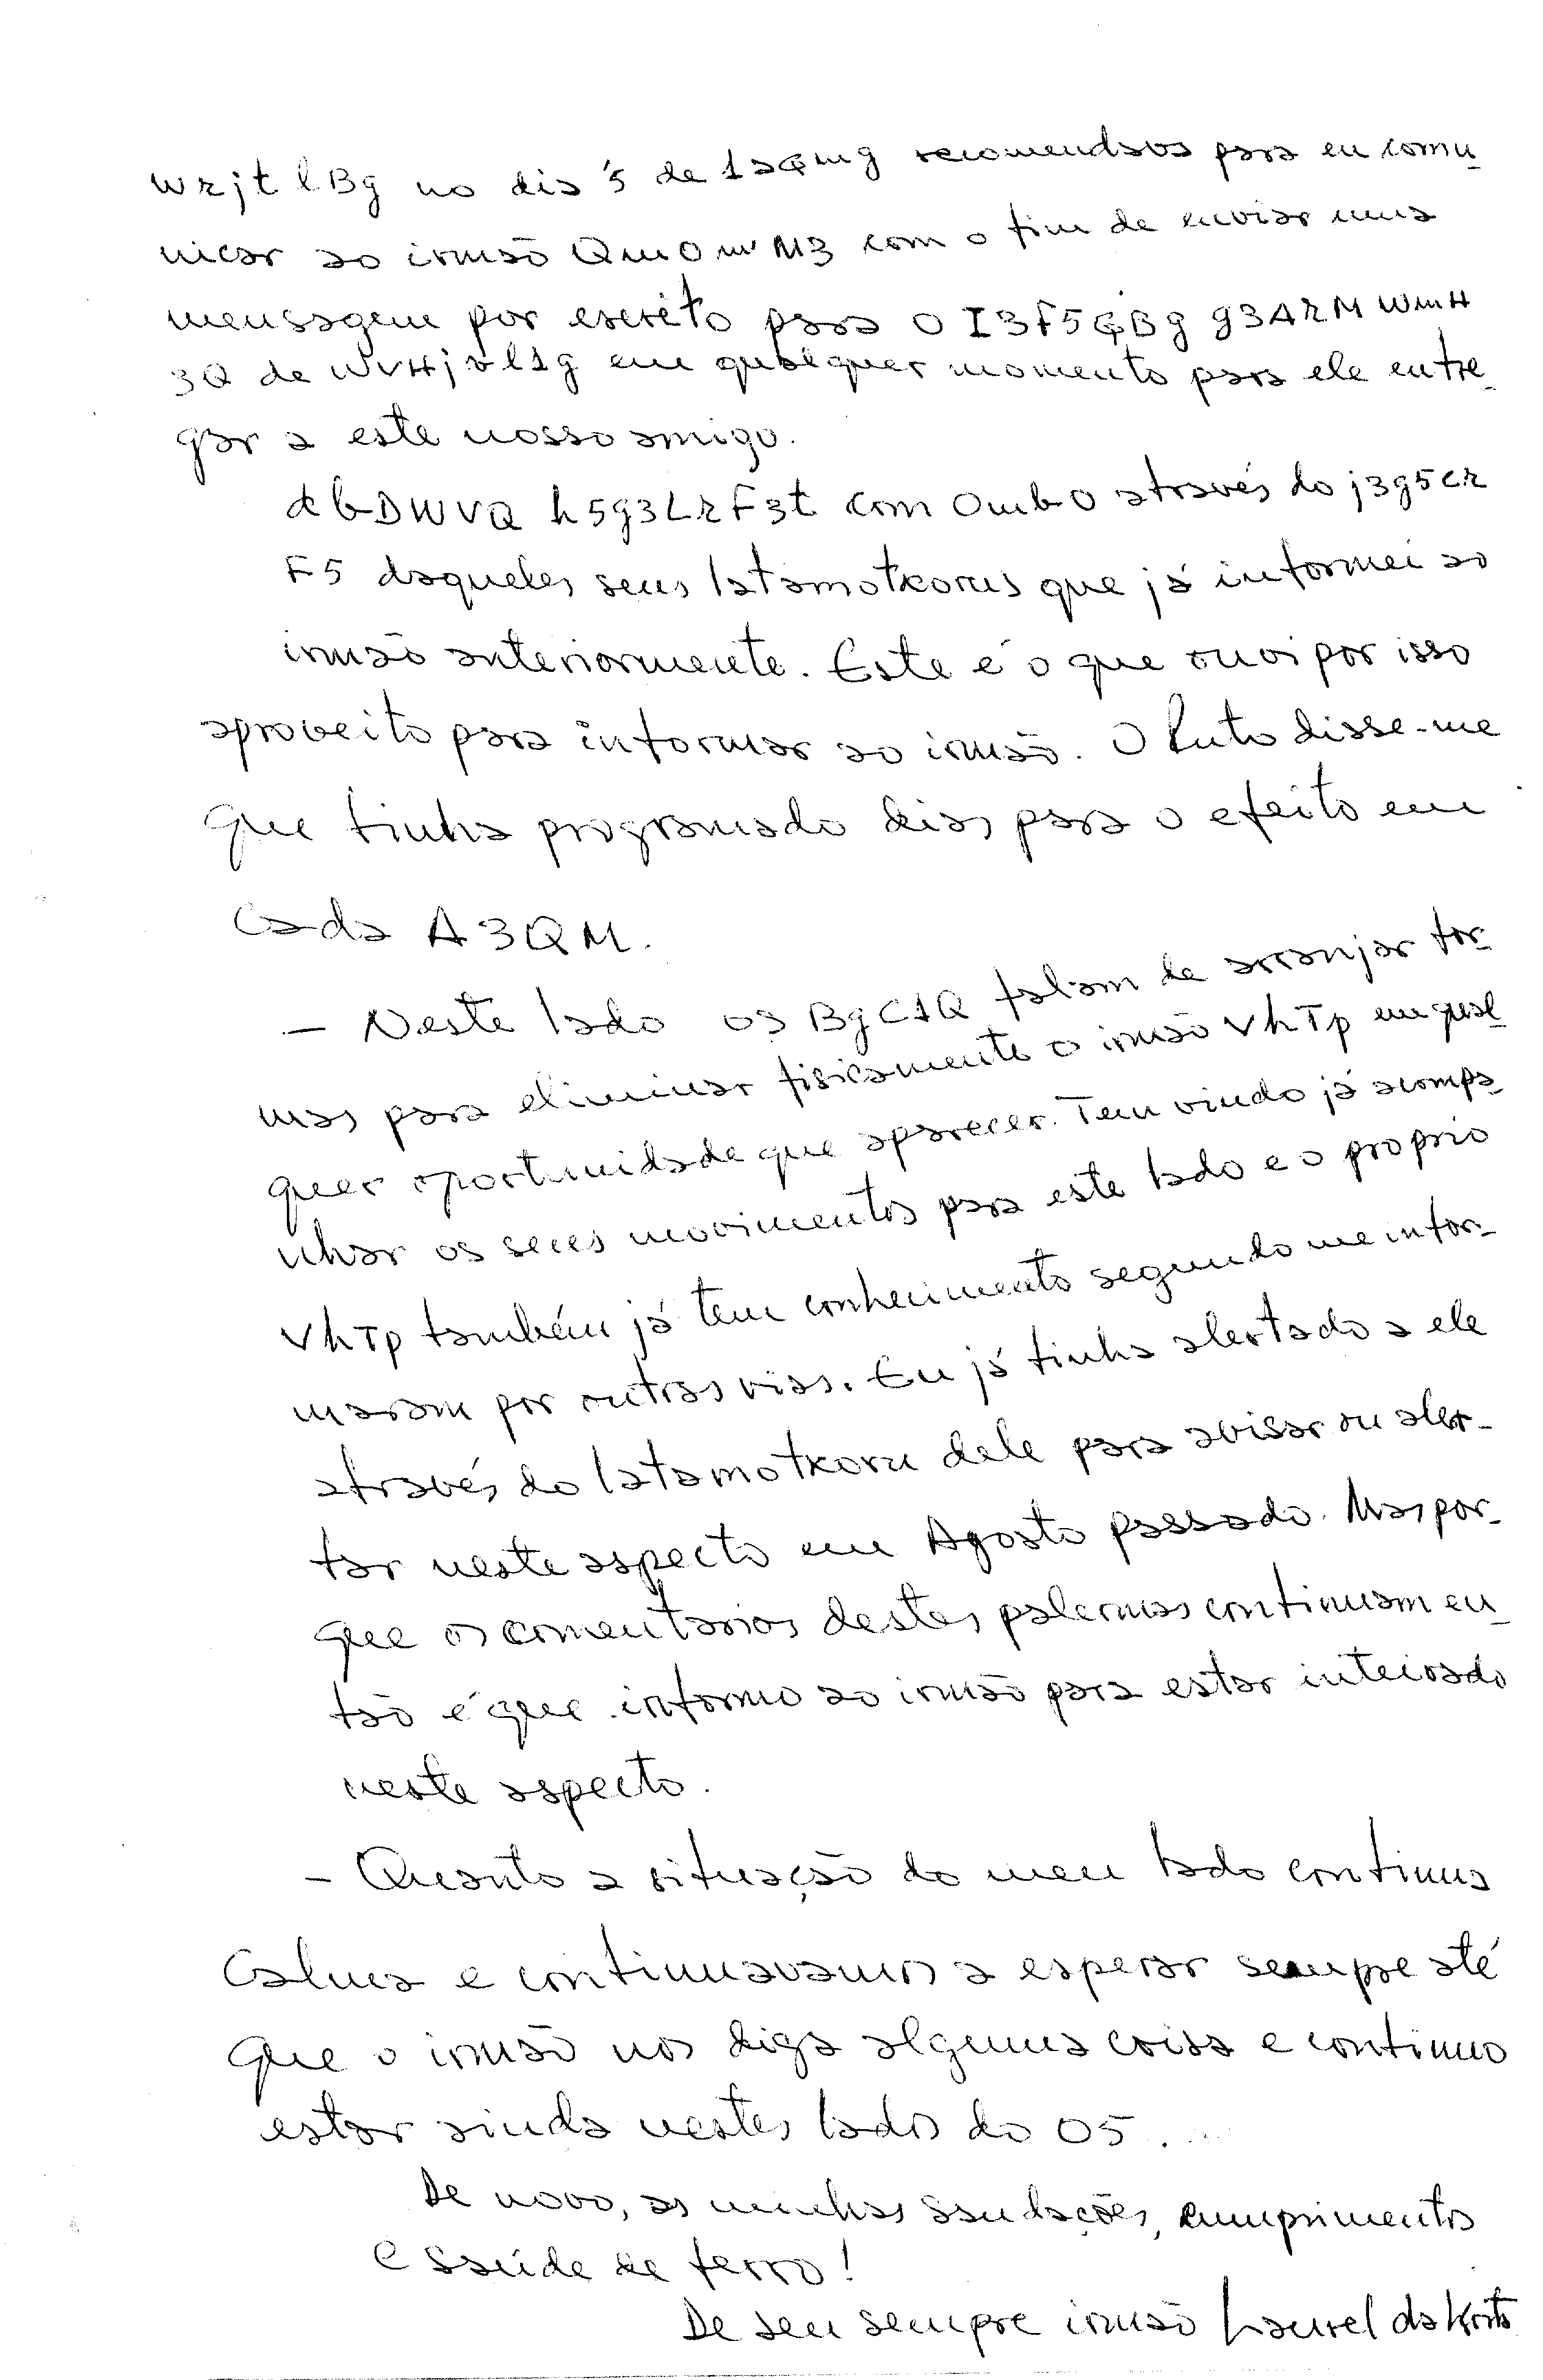 WRjtlBg no dia 5 de 1aQmg recomendava para eu comu
nicar ao irmão QmOmM3 com o fim de enviar uma
mensagem por escrito para O I3F5GBg g3ARM WmH
3Q de WVHjvl1g em qualquer momento para ele entre_
gar a este nosso amigo.
dbDWVQ h5g3LRF3t com OmbO através do j3g5cR
F5 daqueles seus latamotkorus que já informei ao
irmão anteriormente. Este é o que ouvi por isso
aproveito para informar ao irmão. O Puto disse-me
que tinha programado dias para o efeito em
Cada A3QM.
- Neste lado os BgC1Q falam de arranjar for_
mas para eliminar fisicamente o irmão VhTp em qual
quer oportunidade que aparecer. Tem vindo já acompa
nhar os seus movimentos para este lado e o proprio
VhTp também já tem conhecimento segundo me infor_
maram por outras vias. Eu já tinha alertado a ele
através do latamotkoru dele para avisar ou aler_
tar neste aspecto em Agosto passado. Mas por_
que os comentarios destes palermas continuam en
tão é que informo ao irmão para estar inteirado
neste aspecto.
- Quanto a situação do meu lado continua
Calma e continuavamos a esperar sempre até
que o irmão nos diga alguma coisa e continuo
estar ainda nestes lados do 05.
De novo, as minhas Saudações, cumprimentos
e Saúde de ferro!
De seu sempre irmão Laurel da